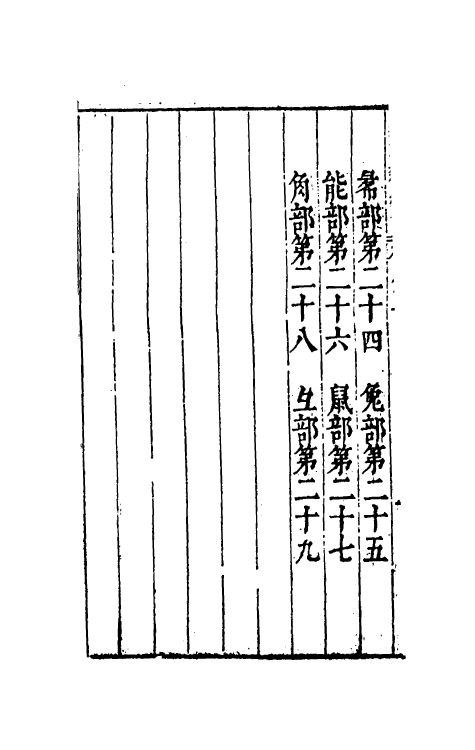 㣇部第二十四　兔部第二十五
能部第二十六　鼠部第二十七
角部第二十八　彑部第二十九